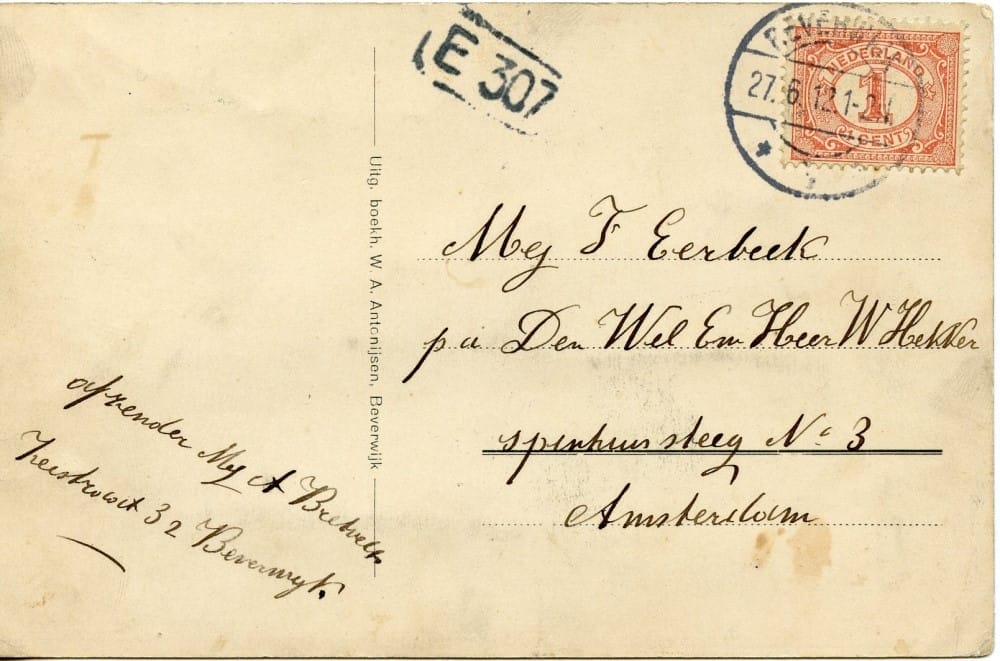 E 307
BEVERW
27.6.12.1-2
NEDERLAND
1
CENT
Uitg. boekh. W. A. Antonijsen, Beverwijk
Mej F Eerbeek
p a Den Wel Em Heer W Hekker
spinhuissteeg No 3
Amsterdam
afzender Mej A
Zeestraat 32 Beverwijk.